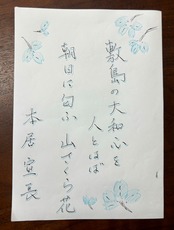 敷島の大和心を
人とはば
朝日に匂ふ 山さくら花
本居宣長